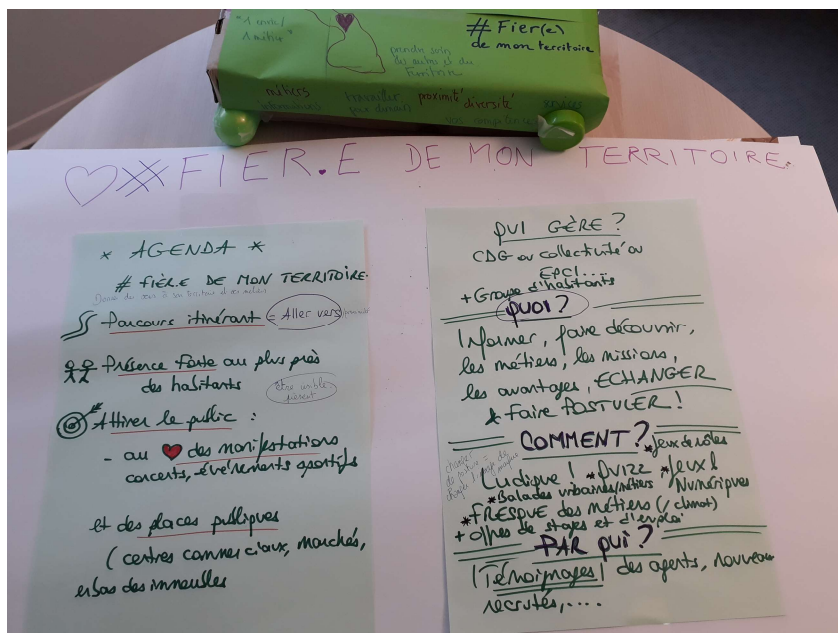 "1 
1 métier"
# Fier(e)
de mon territoire
prendre soin
des autres et du
territoire
métiers
proximité
diversité
♡ # FIER.E DE MON TERRITOIRE.
* AGENDA *
# FIÈR.E DE MON TERRITOIRE.
Parcours itinérant = Aller vers
Présence forte au plus près
des habitants
être visible
présent
Attirer le public :
- au ♥ des manifestations
concerts, événements sportifs
et des places publiques
( centres commerciaux, marchés,
en bas des immeubles
QUI GÈRE ?
CDG ou collectivité ou
EPCI....
+ Groupe d'habitants
QUOI ?
Informer, faire découvrir,
les métiers, les missions,
les avantages, ECHANGER
& faire POSTULER !
COMMENT ? * Jeux de rôles
Ludique ! * Quizz * Jeux
* Balades urbaines/métiers Numériques
* FRESQUE des métiers (/climat)
+ offres de stages et d'emploi
PAR QUI ?
Témoignages des agents, nouveaux
recrutés,....